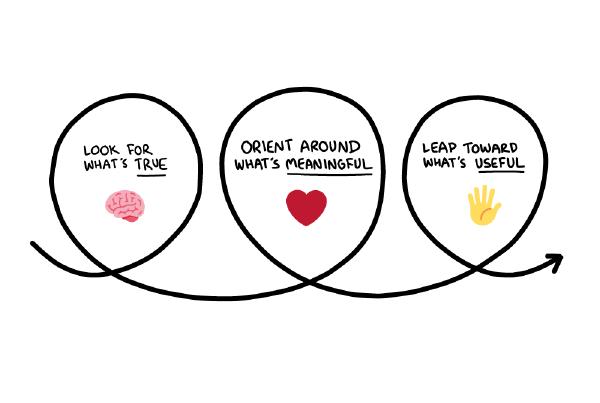 LOOK FOR
WHAT'S TRUE
ORIENT AROUND
WHAT'S MEANINGFUL
LEAP TOWARD
WHAT'S USEFUL